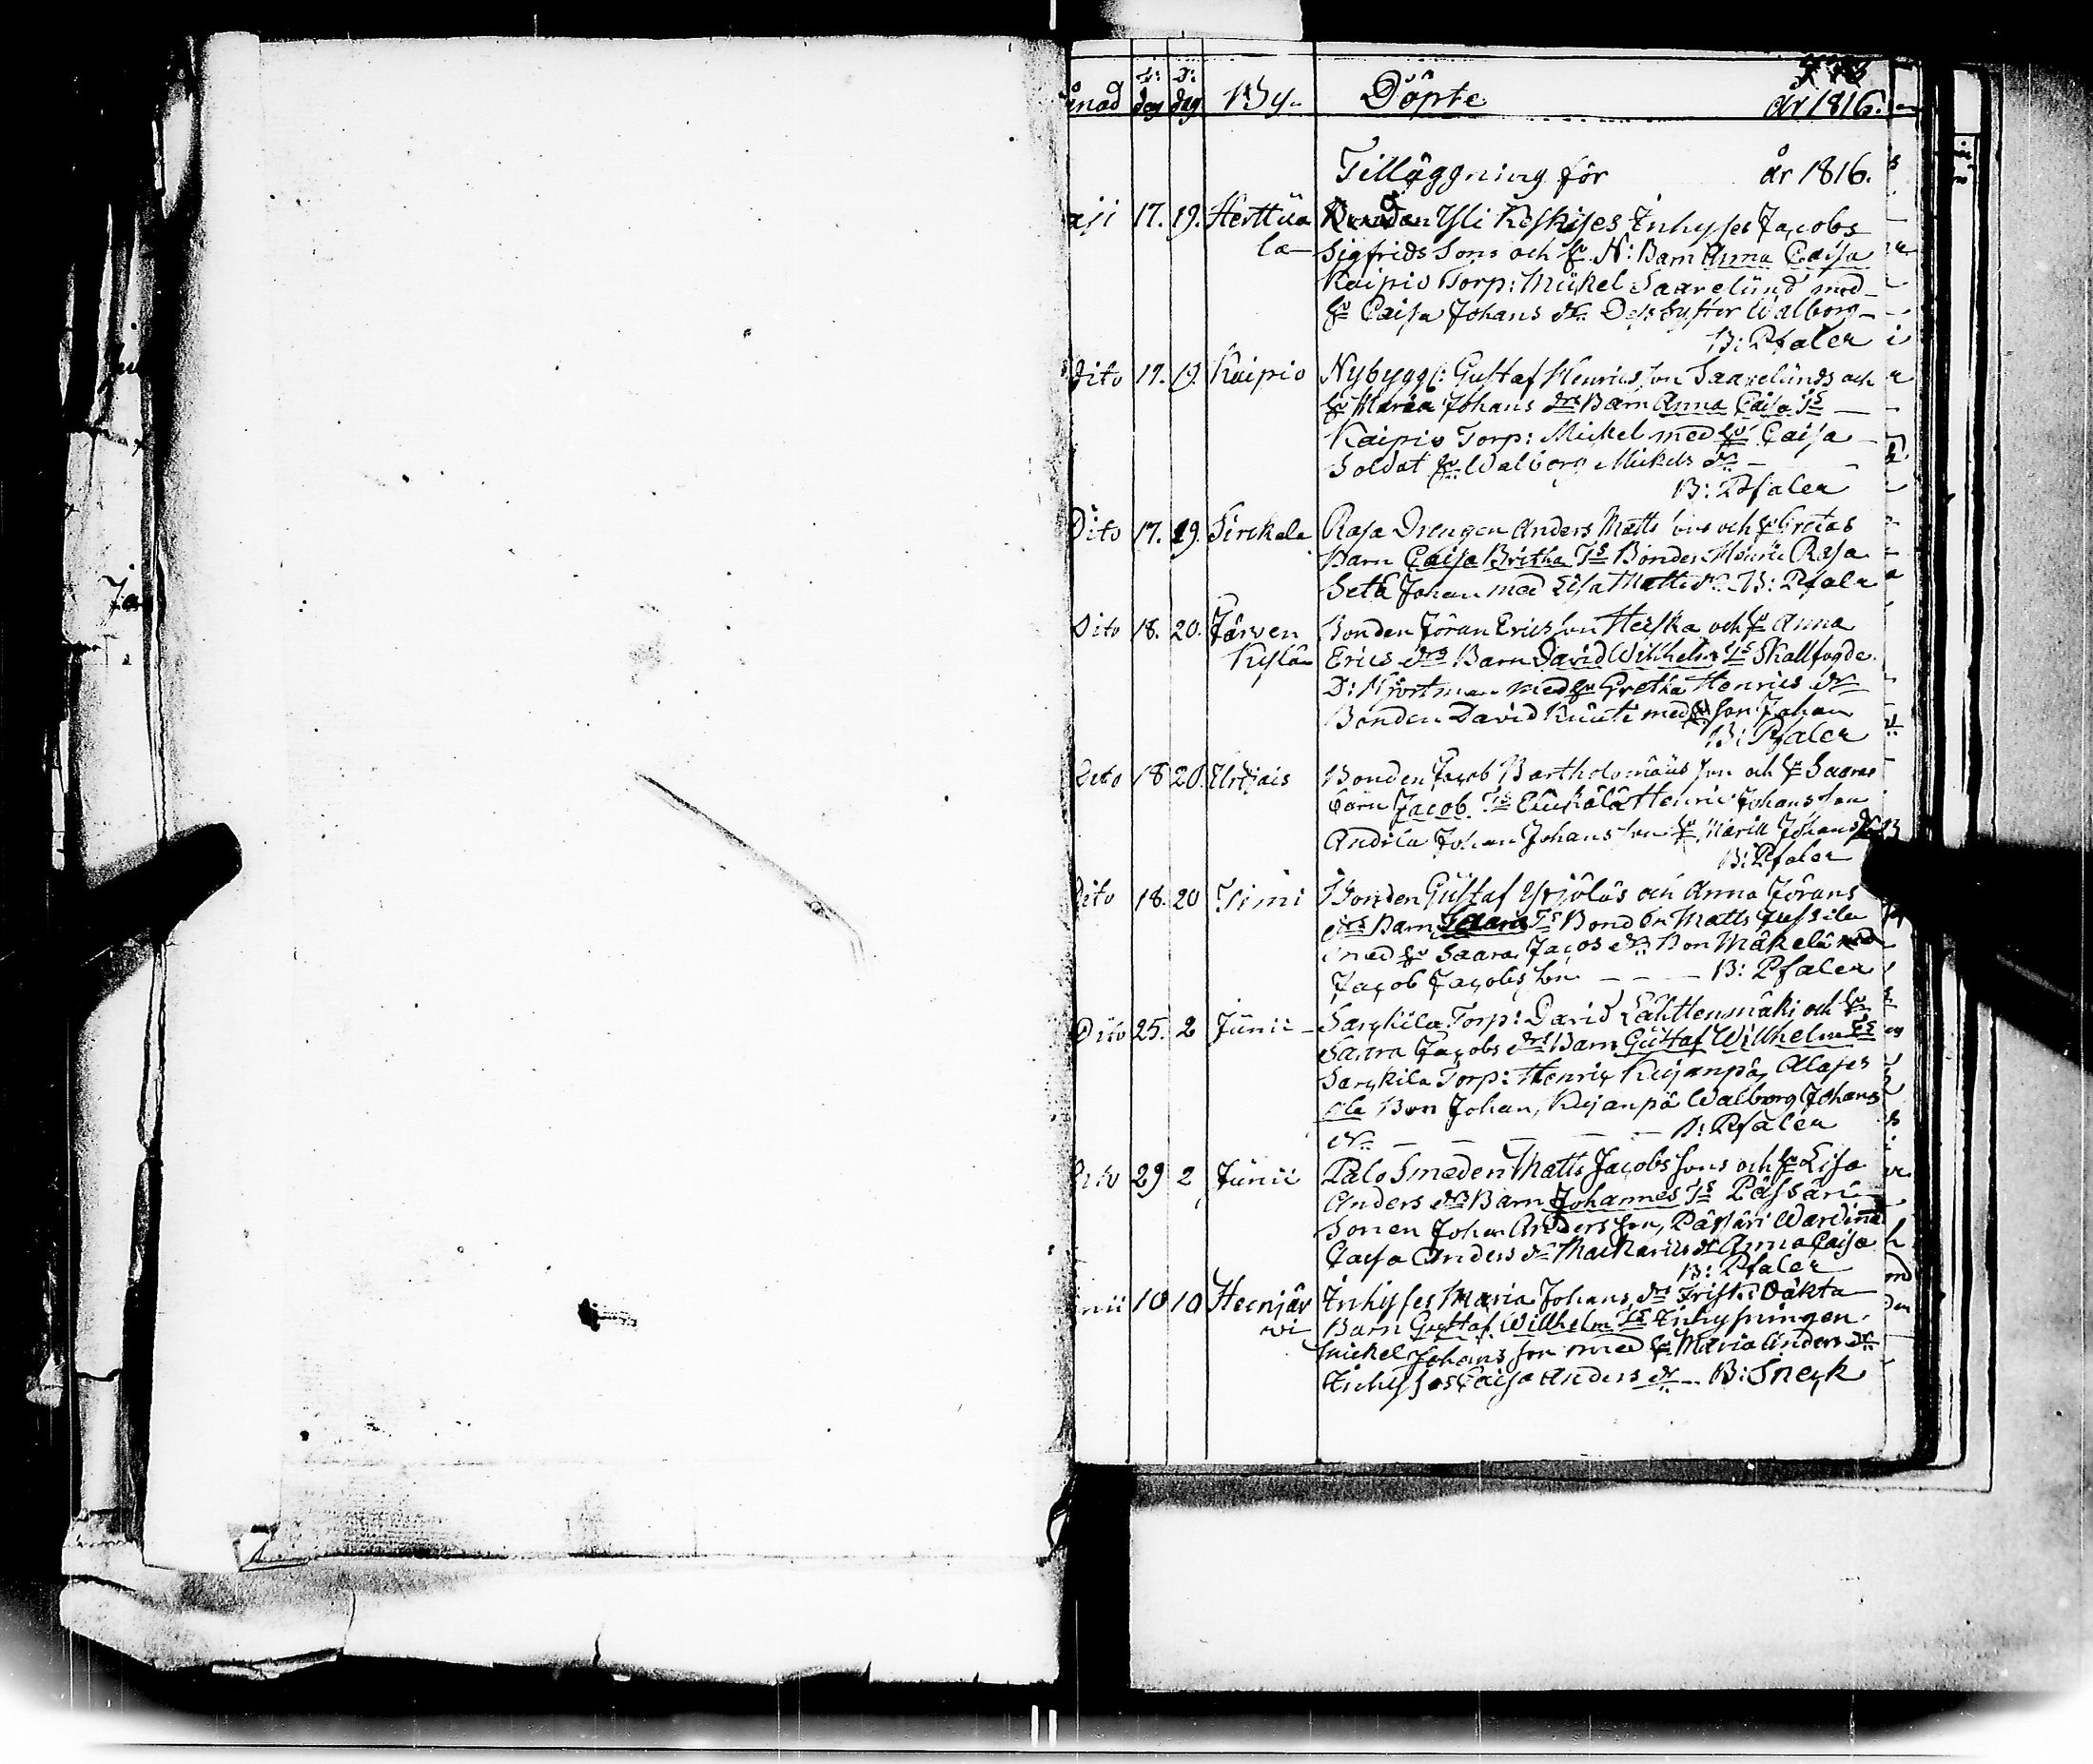 ånad dag dag By Döpte år 1816.
Tilläggning för år 1816.
aji 17. 19. Herttua Bonden Yli Keskises Inhyses Jacobs
la Sigfrids Sons och hu N: Barn Anna Caisa
Kaipio Torp: Mickel Saarelund med
hu Caisa Johans dr Dess Syster Walborg
B: Pfaler
Dito 17. 19. Kaipio Nybygg: Gustaf Henricsson Saarelunds och
hu Maria Johans drs Barn Anna Caisa Ts
Kaipio Torp: Mickel med hu Caisa
Soldat hu Walborg Mickels dr
B: Pfaler
Dito 17. 19. Sirckala Rasa Drengen Anders Matts sons och hu Gretas
Barn Caisa Britha Ts Bonden Henric Rasa
Johan med Lisa Matts dr B: Pfaler
Dito 18. 20. Järven Bonden Jöran Ericsson Heiska och hu Anna
Kyslän Erics drs Barn David Willhelm Ts Skallfogde
D: med hu Gretha Henrics dr
Bonden David Knuuti med son Johan
B: Pfaler
Dito 18 20. Urjais Bonden Jacob Bartholomäus son och hu Saaras
barn Jacob Ts Henric Johansson
Andila Johan Johansson hu Maria Johans dr
B: Pfaler
Dito 18. 20 Simi Bonden Gustaf Yrjölas och Anna Jörans
drs Barn Saara Ts Bonden Matts Jussila
med hu Saara Jacobs dr Bon Mäkelä med
Jacob Jacobsson B: Pfaler
Dito 25. 2 Junii Sarkila Torp: David Lähttenmäki och hu
Saara Jacobs drs Barn Gustaf Willhelm Ts
Sarkila Torp: Henric Kujanpä, Alases
Bon Johan, Kujanpä Walborg Johans
dr B: Pfaler
Dito 29 2 Junii Palo Smeden Matts Jacobs sons och hu Lisa
Anders drs Barn Johannes Ts Pässäri
Sonen Johan Andersson, Pässäri Wärdinna
Caisa Anders dr dr Anna Caisa
B: Pfaler
nii 10 10 Heinjär Inhyses Maria Johans drs Oäkta
wi Barn Gustaf Willhelm Ts Inhysningen
Mickel Johans son med hu Maria Anders dr
Inhyses Caisa Anders dr B: Sneck